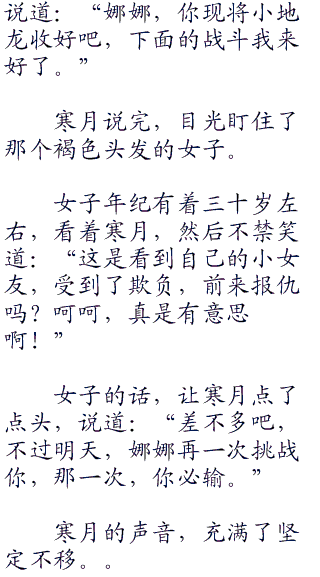 说道：“娜娜，你现将小地
龙收好吧，下面的战斗我来
好了。”
寒月说完，目光盯住了
那个褐色头发的女子。
女子年纪有着三十岁左
右，看着寒月，然后不禁笑
道：“这是看到自己的小女
友，受到了欺负，前来报仇
吗？呵呵，真是有意思
啊！”
女子的话，让寒月点了
点头，说道：“差不多吧，
不过明天，娜娜再一次挑战
你，那一次，你必输。”
寒月的声音，充满了坚
定不移。。